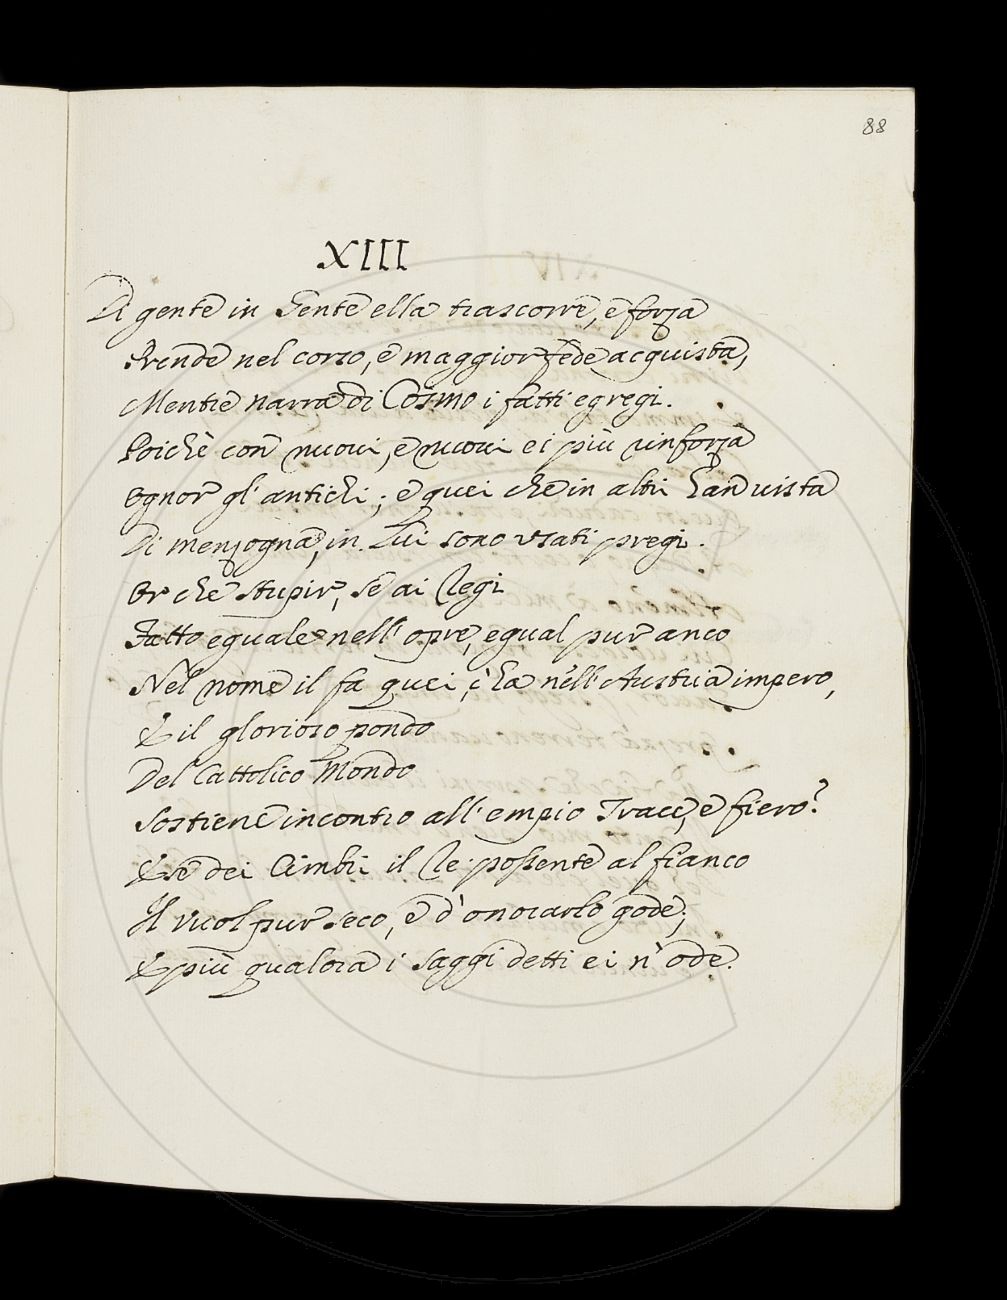 88
XIII
Di gente in Gente ella trascorre, e forza
Prende nel corso, e maggior fede acquista,
Mentre narra di Cosmo i fatti egregi.
Poichè con nuoui, e nuoui ei più rinforza
Ognor gl' antichi; e quei che in altri han uista
Di menzogna, in Lui sono vsati pregi.
Or che stupir, se ai Regi
Fatto eguale nell' opre, egual pur anco
Nel nome il fa quei, c' ha nell' Austria impero,
E il glorioso pondo
Del Cattolico Mondo
Sostiene incontro all' empio Trace, e fiero?
E e dei Cimbri il Re possente al fianco
Il vuol pur seco, e d' onorarlo gode;
E più qualora i saggi detti ei n' ode.